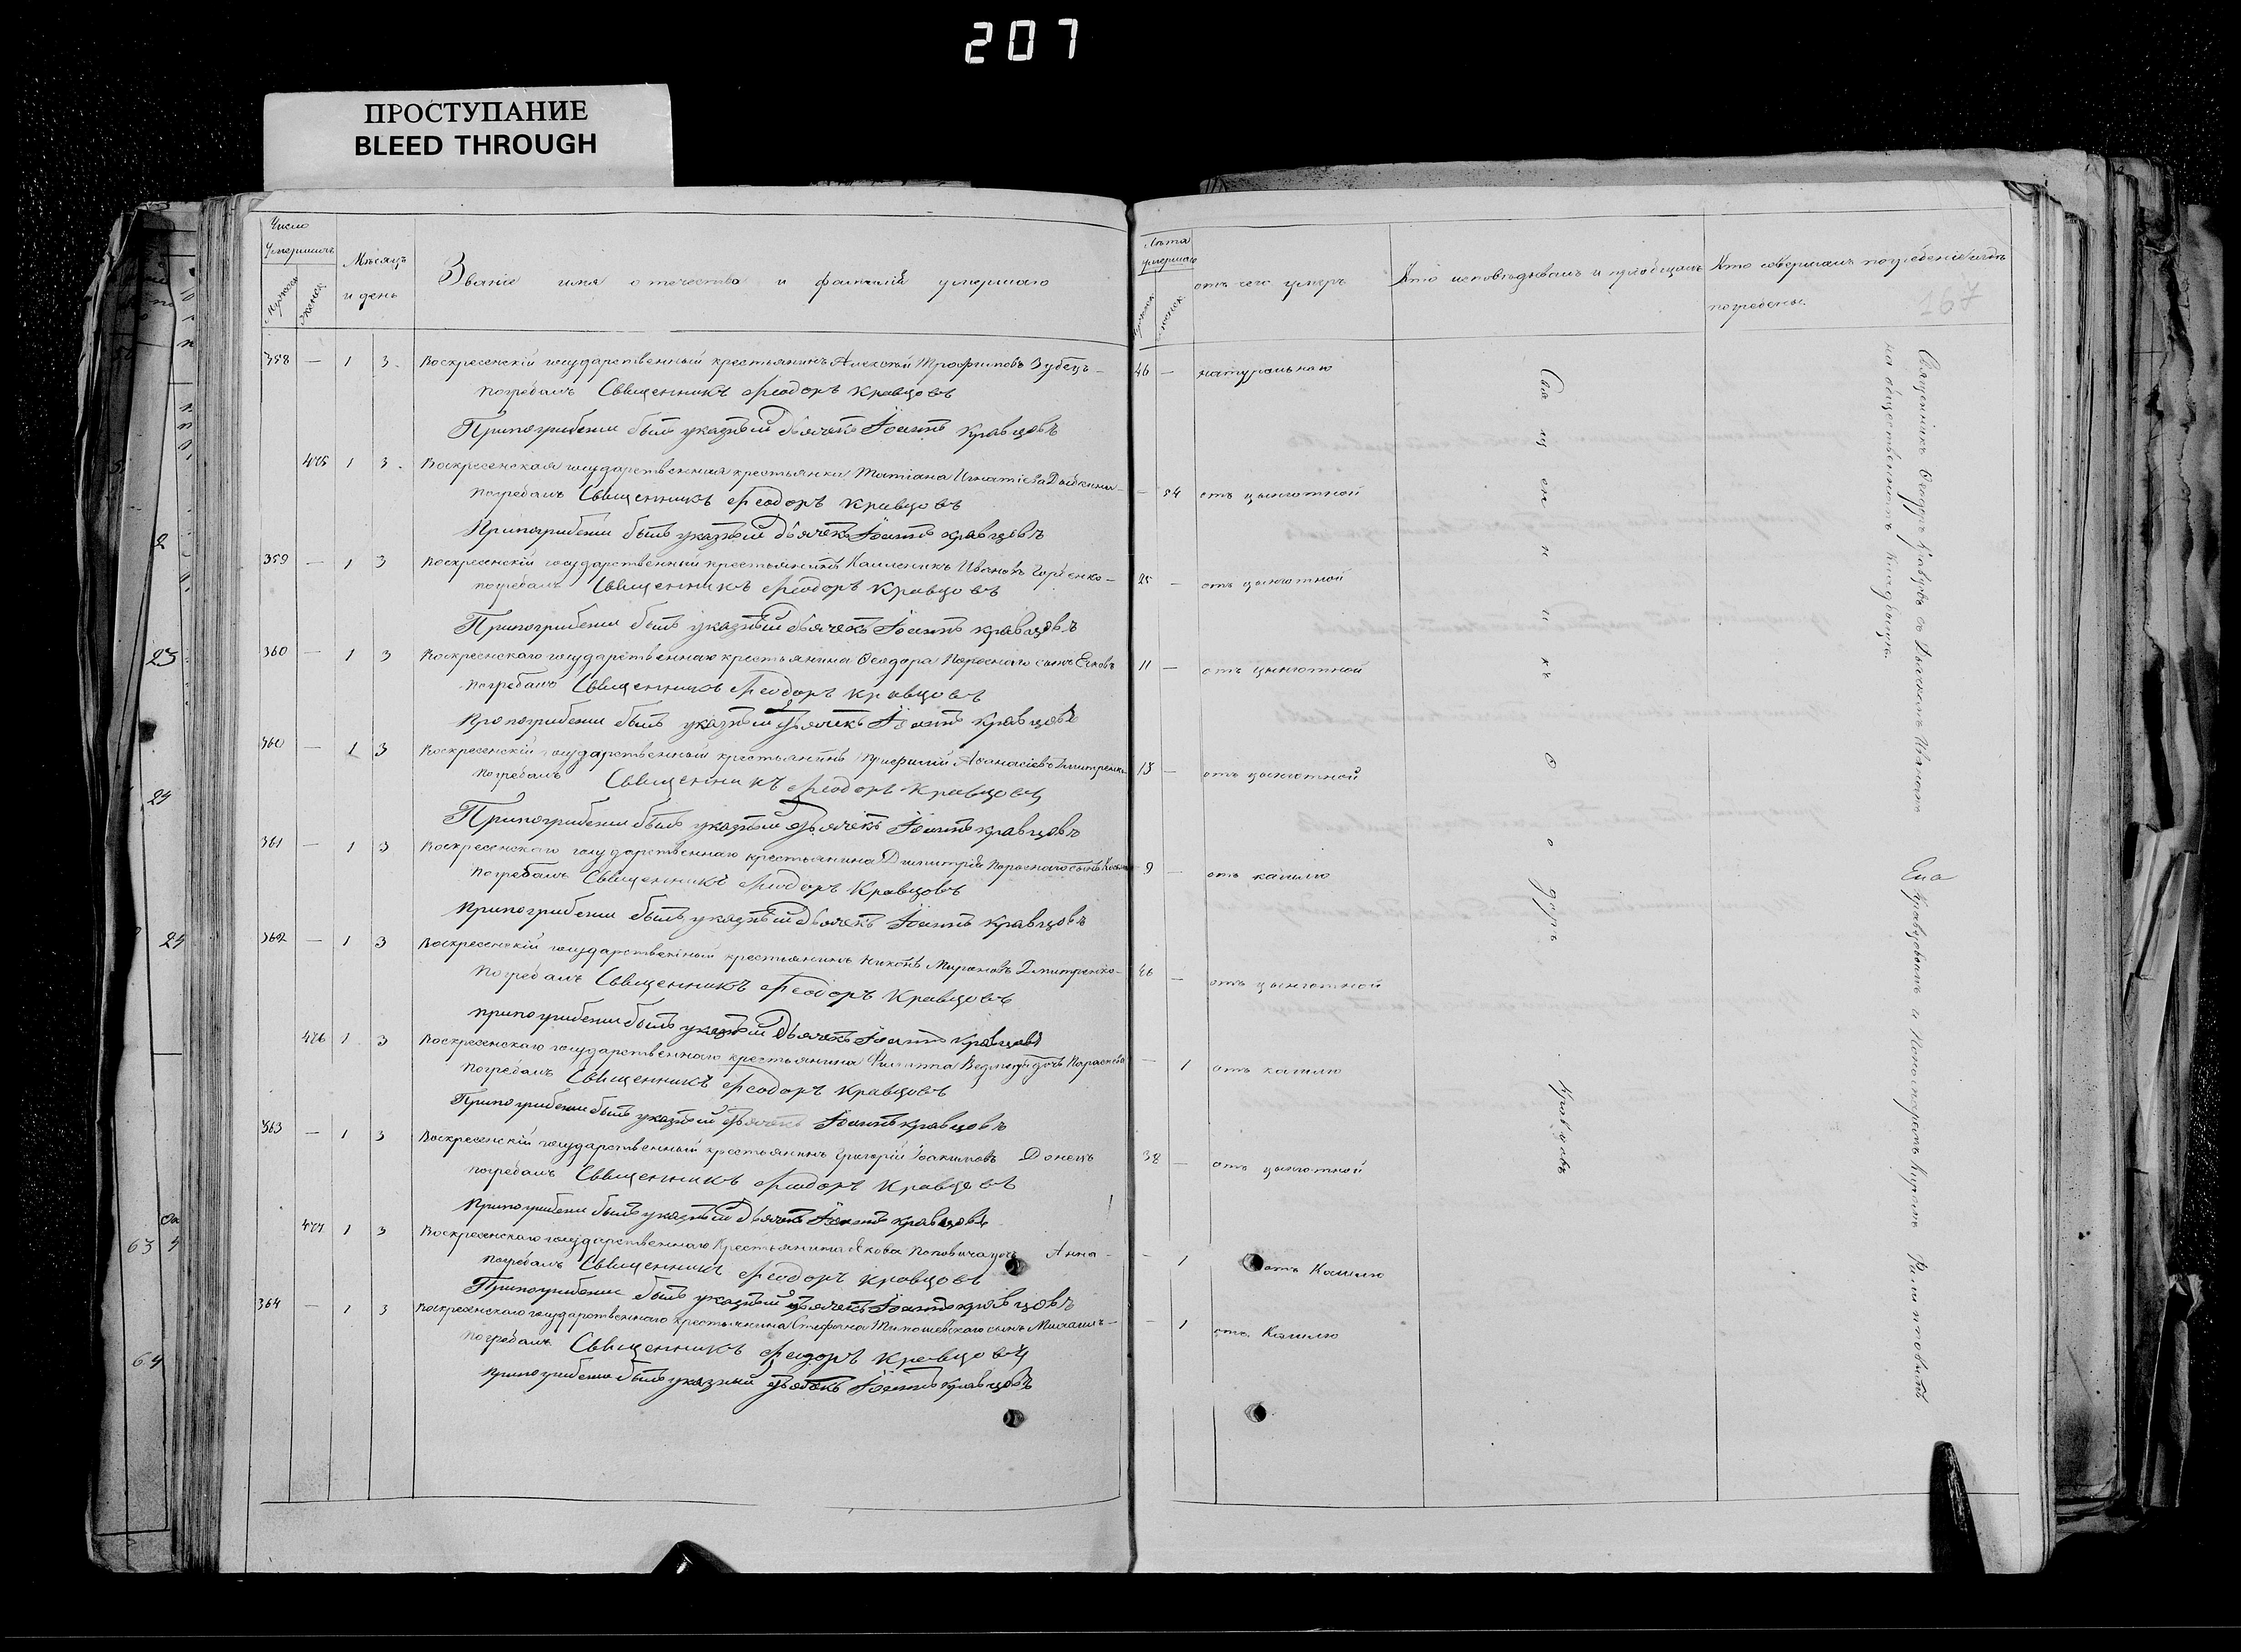 207
ПРОСТУПАНИЕ
BLEED THROUGH
Число
Умершихъ
Мѣсяцъ
и день
Званіе имя отечество и фамилія умершаго
358 — 1 3. Воскресенскій государственный крестьянинъ Алексѣй Трофимовъ Зубецъ —
погребалъ Священникъ Феодоръ Кравцовъ
Припогрибении былъ указный дьячекъ Іоаннъ Кравцовъ
475 1 3. Воскресенская государственная крестьянка Татіана Игнатіева
погребалъ Священникъ Феодоръ Кравцовъ
Припогрибении былъ указный дьячекъ Іоаннъ Кравцовъ
359 — 1 3 Воскресенскій государственный крестьянинъ Каленикъ Ивановъ
погребалъ Священникъ Феодоръ Кравцовъ
Припогрибении былъ указный дьячекъ Іоаннъ Кравцовъ
360 — 1 3 Воскресенскаго государственнаго крестьянина Ѳеодора Пороснаго сынъ
погребалъ Священникъ Феодоръ Кравцовъ
Припогрибении былъ указный дьячекъ Іоаннъ Кравцовъ
360 — 1 3 Воскресенскій государственный крестьянинъ Аѳанасіевъ Дмитренко
погребалъ Священникъ Феодоръ Кравцовъ
Припогрибении былъ указный дьячекъ Іоаннъ Кравцовъ
361 — 1 3 Воскресенскаго государственнаго крестьянина Димитрія Пороснаго сынъ
погребалъ Священникъ Феодоръ Кравцовъ
Припогрибении былъ указный дьячекъ Іоаннъ Кравцовъ
362 — 1 3 Воскресенскій государственный крестьянинъ Никонъ Мироновъ Дмитренко —
погребалъ Священникъ Феодоръ Кравцовъ
припогрибении былъ указный дьячекъ Іоаннъ Кравцовъ
476 1 3 Воскресенскаго государственнаго крестьянина Филиппа дочь
погребалъ Священникъ Феодоръ Кравцовъ
Припогрибении былъ указный дьячекъ Іоаннъ Кравцовъ
363 — 1 3 Воскресенскій государственный крестьянинъ Григорій Іоакимовъ Донецъ
погребалъ Священникъ Феодоръ Кравцовъ
Припогрибении былъ указный дьячекъ Іоаннъ Кравцовъ
477 1 3 Воскресенскаго государственнаго Крестьянина Якова Поповича дочь Анна —
погребалъ Священникъ Феодоръ Кравцовъ
Припогрибении былъ указный дьячекъ Іоаннъ Кравцовъ
364 — 1 3 Воскресенскаго государственнаго крестьянина Стефана сынъ Михаилъ —
погребалъ Священникъ Феодоръ Кравцовъ
припогрибении былъ указный дьячекъ Іоаннъ Кравцовъ
Лѣта
умершаго
отъ чего умеръ
Кто исповѣдывалъ и пріобщалъ
Кто совершалъ погребеніе и гдѣ
погребены.
167
46 — натурально
— 54 отъ цынготной
25 — отъ цынготной
11 — отъ цынготной
13 — отъ цынготной
9 — отъ кашлю
46 — отъ цынготной
— 1 отъ кашлю
38 — отъ цынготной
— 1 отъ Кашлю
— 1 отъ Кашлю
Священникъ Ѳеодоръ Кравцовъ
Священникъ Ѳеодоръ Кравцовъ съ Дьячкомъ Иваномъ Кравцовымъ и Пономаремъ
на общественномъ кладбищѣ.
23
24
24
63
64